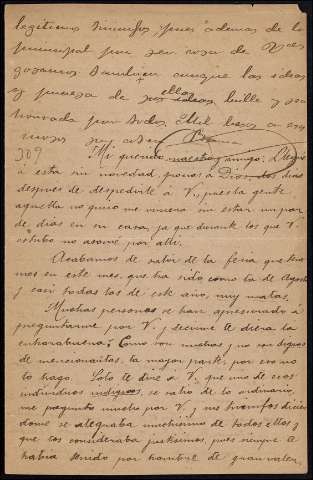 legitimos triunfos, pues ademas de lo
principal por ser cosa de Vdes
gozamos tambien aunque las ideas
y pureza de sus ellas brille y sea
honrada por todos. Mil besos a esos
monos
309 Mi querido maestro y amigo: Llegué
á esta sin novedad, gracias á Dios, dos dias
despues de despedirte á V., pues ta gente
aquella no quiso me viniera sin estar un par
de dias en su casa, ya que durante los que V.
estubo no asomé por alli.
Acabamos de salir de la feria que tene
mos en este mes, que ha sido como la de Agosto
y casi todas las de este año, muy malas.
Muchas personas se han apresurado á
preguntarme por V. y decirme te diera la
enhorabuena; Como son muchos y no son dignos
de mencionarlos, la mayor parte, por eso no
lo hago. Solo te diré a V. que uno de esos
individuos indignos, se salió de lo ordinario,
me preguntó mucho por V. y sus triunfos dicien
dome se alegraba muchisimo de todos ellos y
que los consideraba justisimos, pues siempre te
habia tenido por hombre de gran valer,